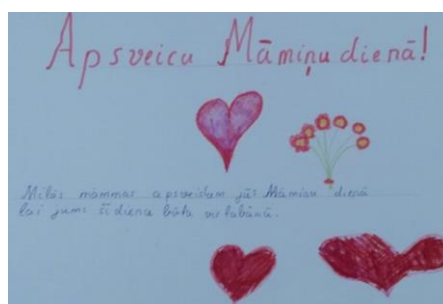 Apsveicu Māmiņu dienā!
Mīļās māmmas apsveicam jūs Māmiņu dienā
lai jums šī diena būtu vislabākā.